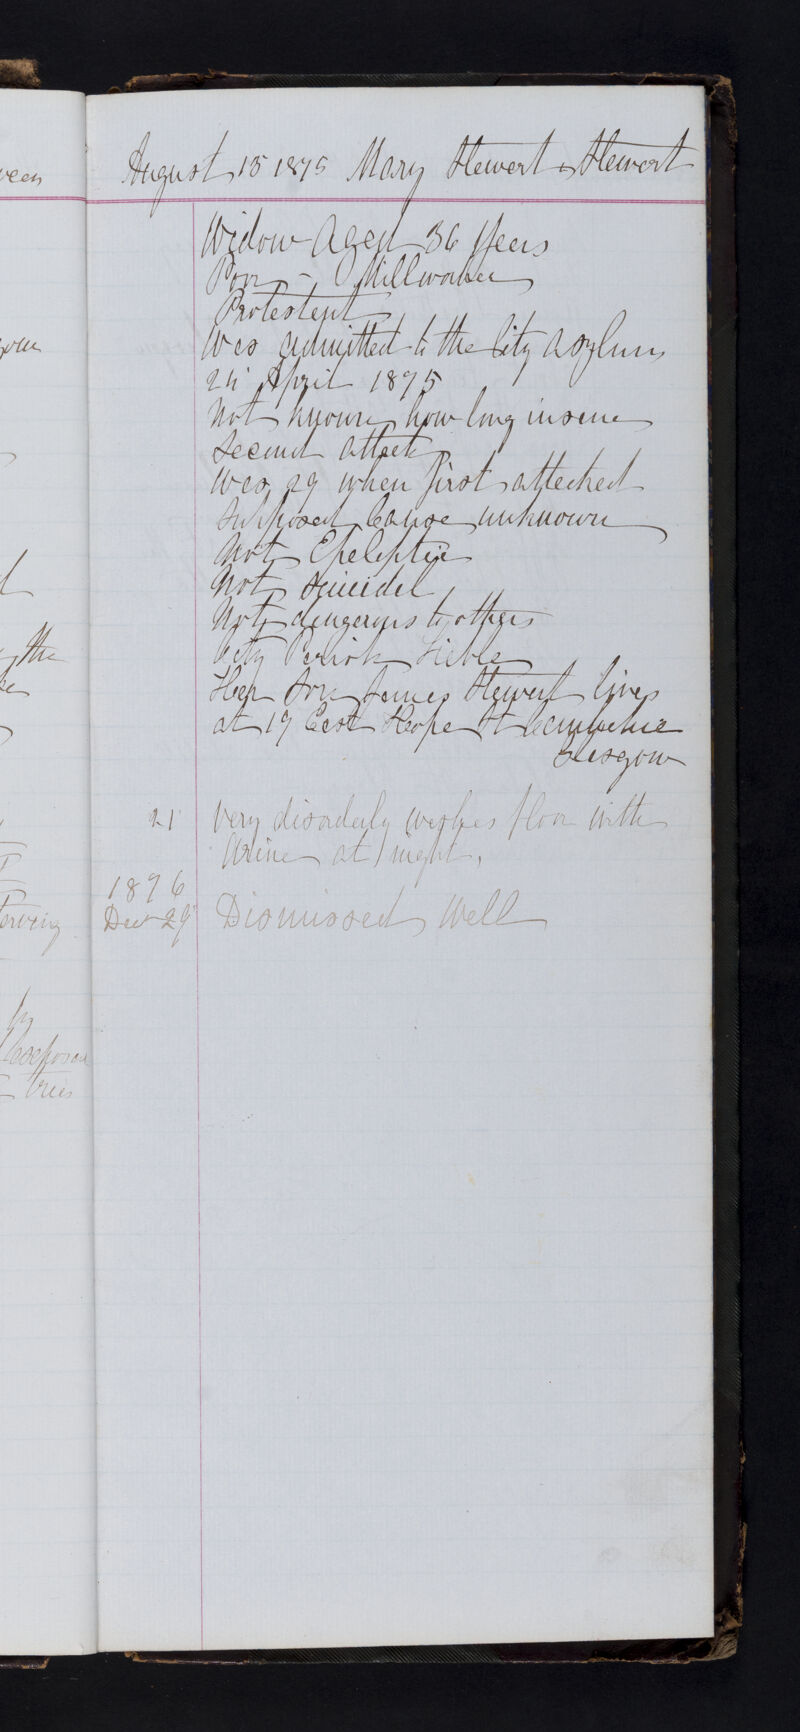 August 13 1875 Mary Stewert or Stewert
Widow Aged 36 Years
Poor - Millworker
Protestent
Was admitted to the City Asylum
24 April 1875
Not known how long insane
Second attack
Was 29 when first attacked
Supposed Cause unknown
Not Epeleptic
Not Suicidal
Not dangerous to others
City Perish Lieble
Her Son James Stewert lives
at 19 East Hope St Camlachie
Glasgow
21 Very disorderly washes floor with
Urine at night.
1876
Dec 29 Dismissed Well
the